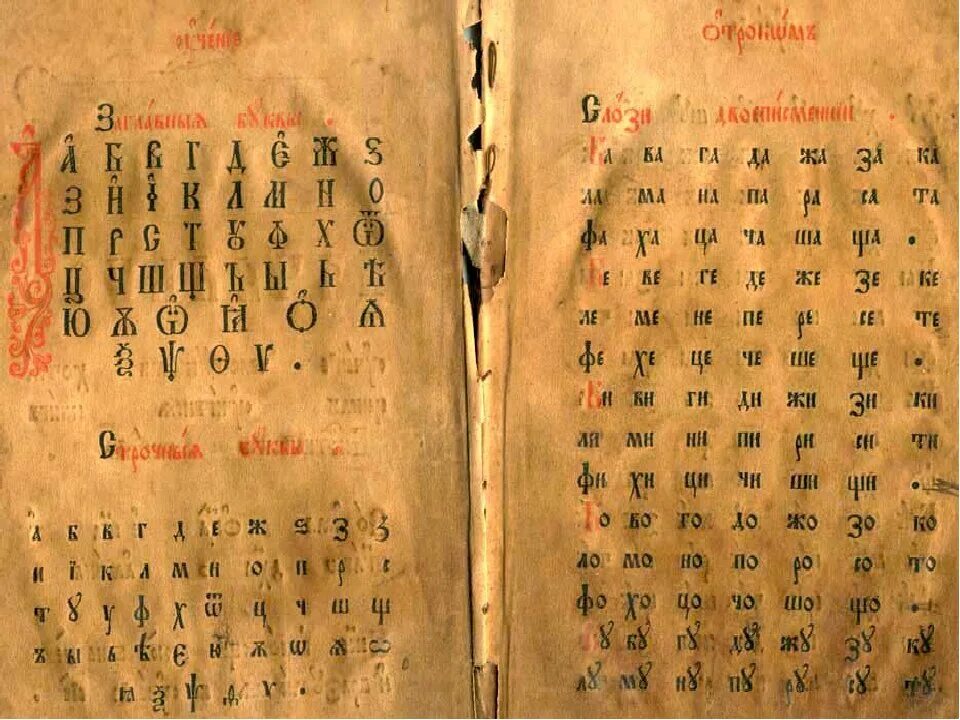 Заглавныѧ бꙋквы .
А Б В Г Д Є Ж Ѕ
З И І К Л М Н О
П Р С Т Ꙋ Ф Х Ѿ
Ц Ч Ш Щ Ъ Ы Ь Ѣ
Ю Ѫ Ѡ Ꙗ Ѻ Ѧ
Ѯ Ѱ Ѳ Ѵ .
Строчныѧ бꙋквы
а б в г д е ж ѕ з
и ї к л м н о п р с
т ꙋ у ф х ѿ ц ч ш щ
ъ ы ь ѣ є ю ѫ ѡ ѧ
ꙗ ѯ ѱ ѵ .
Отрокѡмъ
Слози двописменнии .
Ба ва га да жа за ка
ла ма на па ра са та
фа ха ца ча ша ща .
Бе ве ге де же зе ке
ле ме не пе ре се те
фе хе це че ше ще .
Би ви ги ди жи зи ки
ли ми ни пи ри си ти
фи хи ци чи ши щи .
во го до жо зо ко
ло мо но по ро со то
фо хо цо чо шо що .
вꙋ гꙋ дꙋ жꙋ зꙋ кꙋ
лꙋ мꙋ нꙋ пꙋ рꙋ сꙋ тꙋ